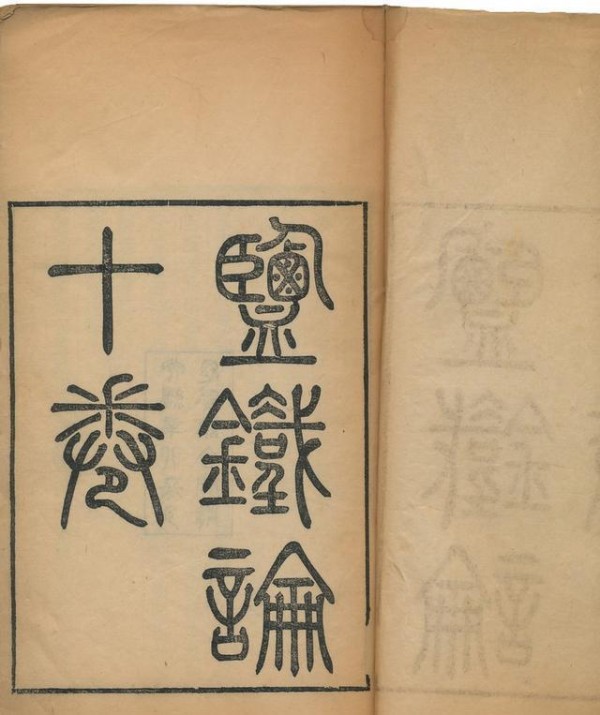 鹽鐵論
十卷